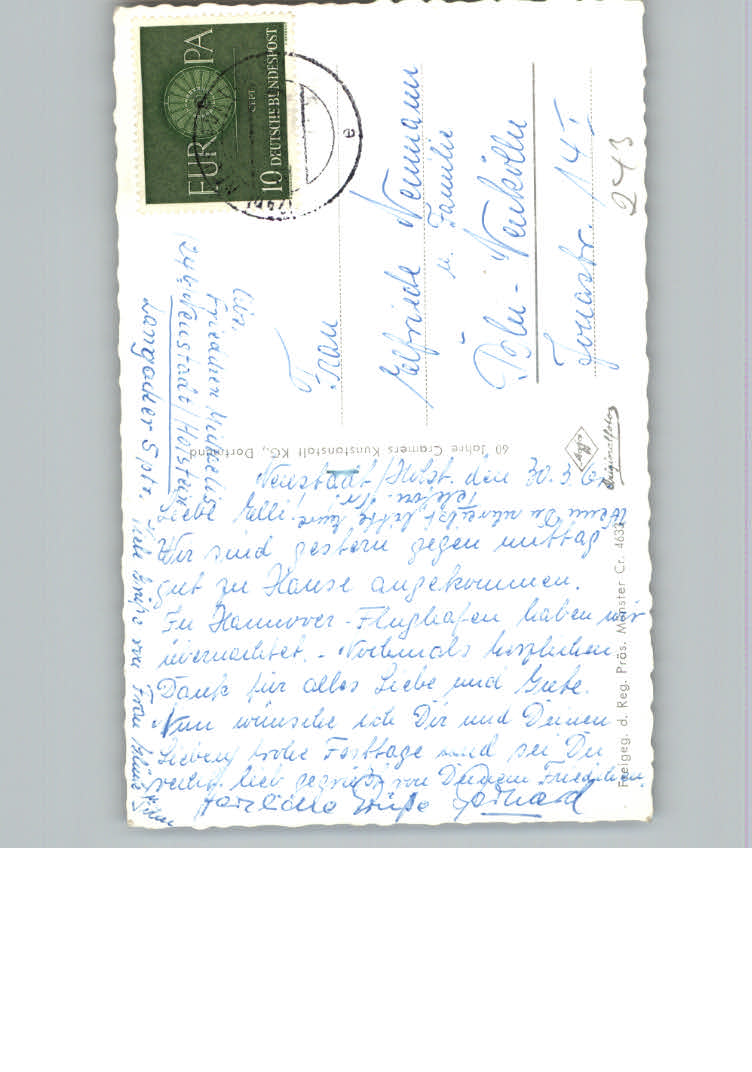 EUROPA
CEPT
10 DEUTSCHE BUNDESPOST
e
Frau
Elfriede Neumann
u. Familie
Bln - Neukölln
Jonastr. 14 I
243
Abs.
Friedchen
(24b) Neustadt/Holstein
Langacker 5 ptr.
60 Jahre Cramers Kunstanstalt KG., Dortmund
Originalfoto
Freigeg. d. Reg. Präs. Münster Cr. 4632
Neustadt/Holst. den 30.3.61
Wenn Du schreibst bitte Eure
Telefon. Nr.
Liebe Elli!
Wir sind gestern gegen mittag
gut zu Hause angekommen.
In Hannover-Flughafen haben wir
übernachtet. - Nochmals herzlichen
Dank für alles Liebe und Gute.
Nun wünsche ich Dir und Deinen
Lieben frohe Festtage und sei Du
recht lieb gegrüßt von Deinem Friedchen.
Herzliche Grüße Gerhard
Viele Grüße von Frau